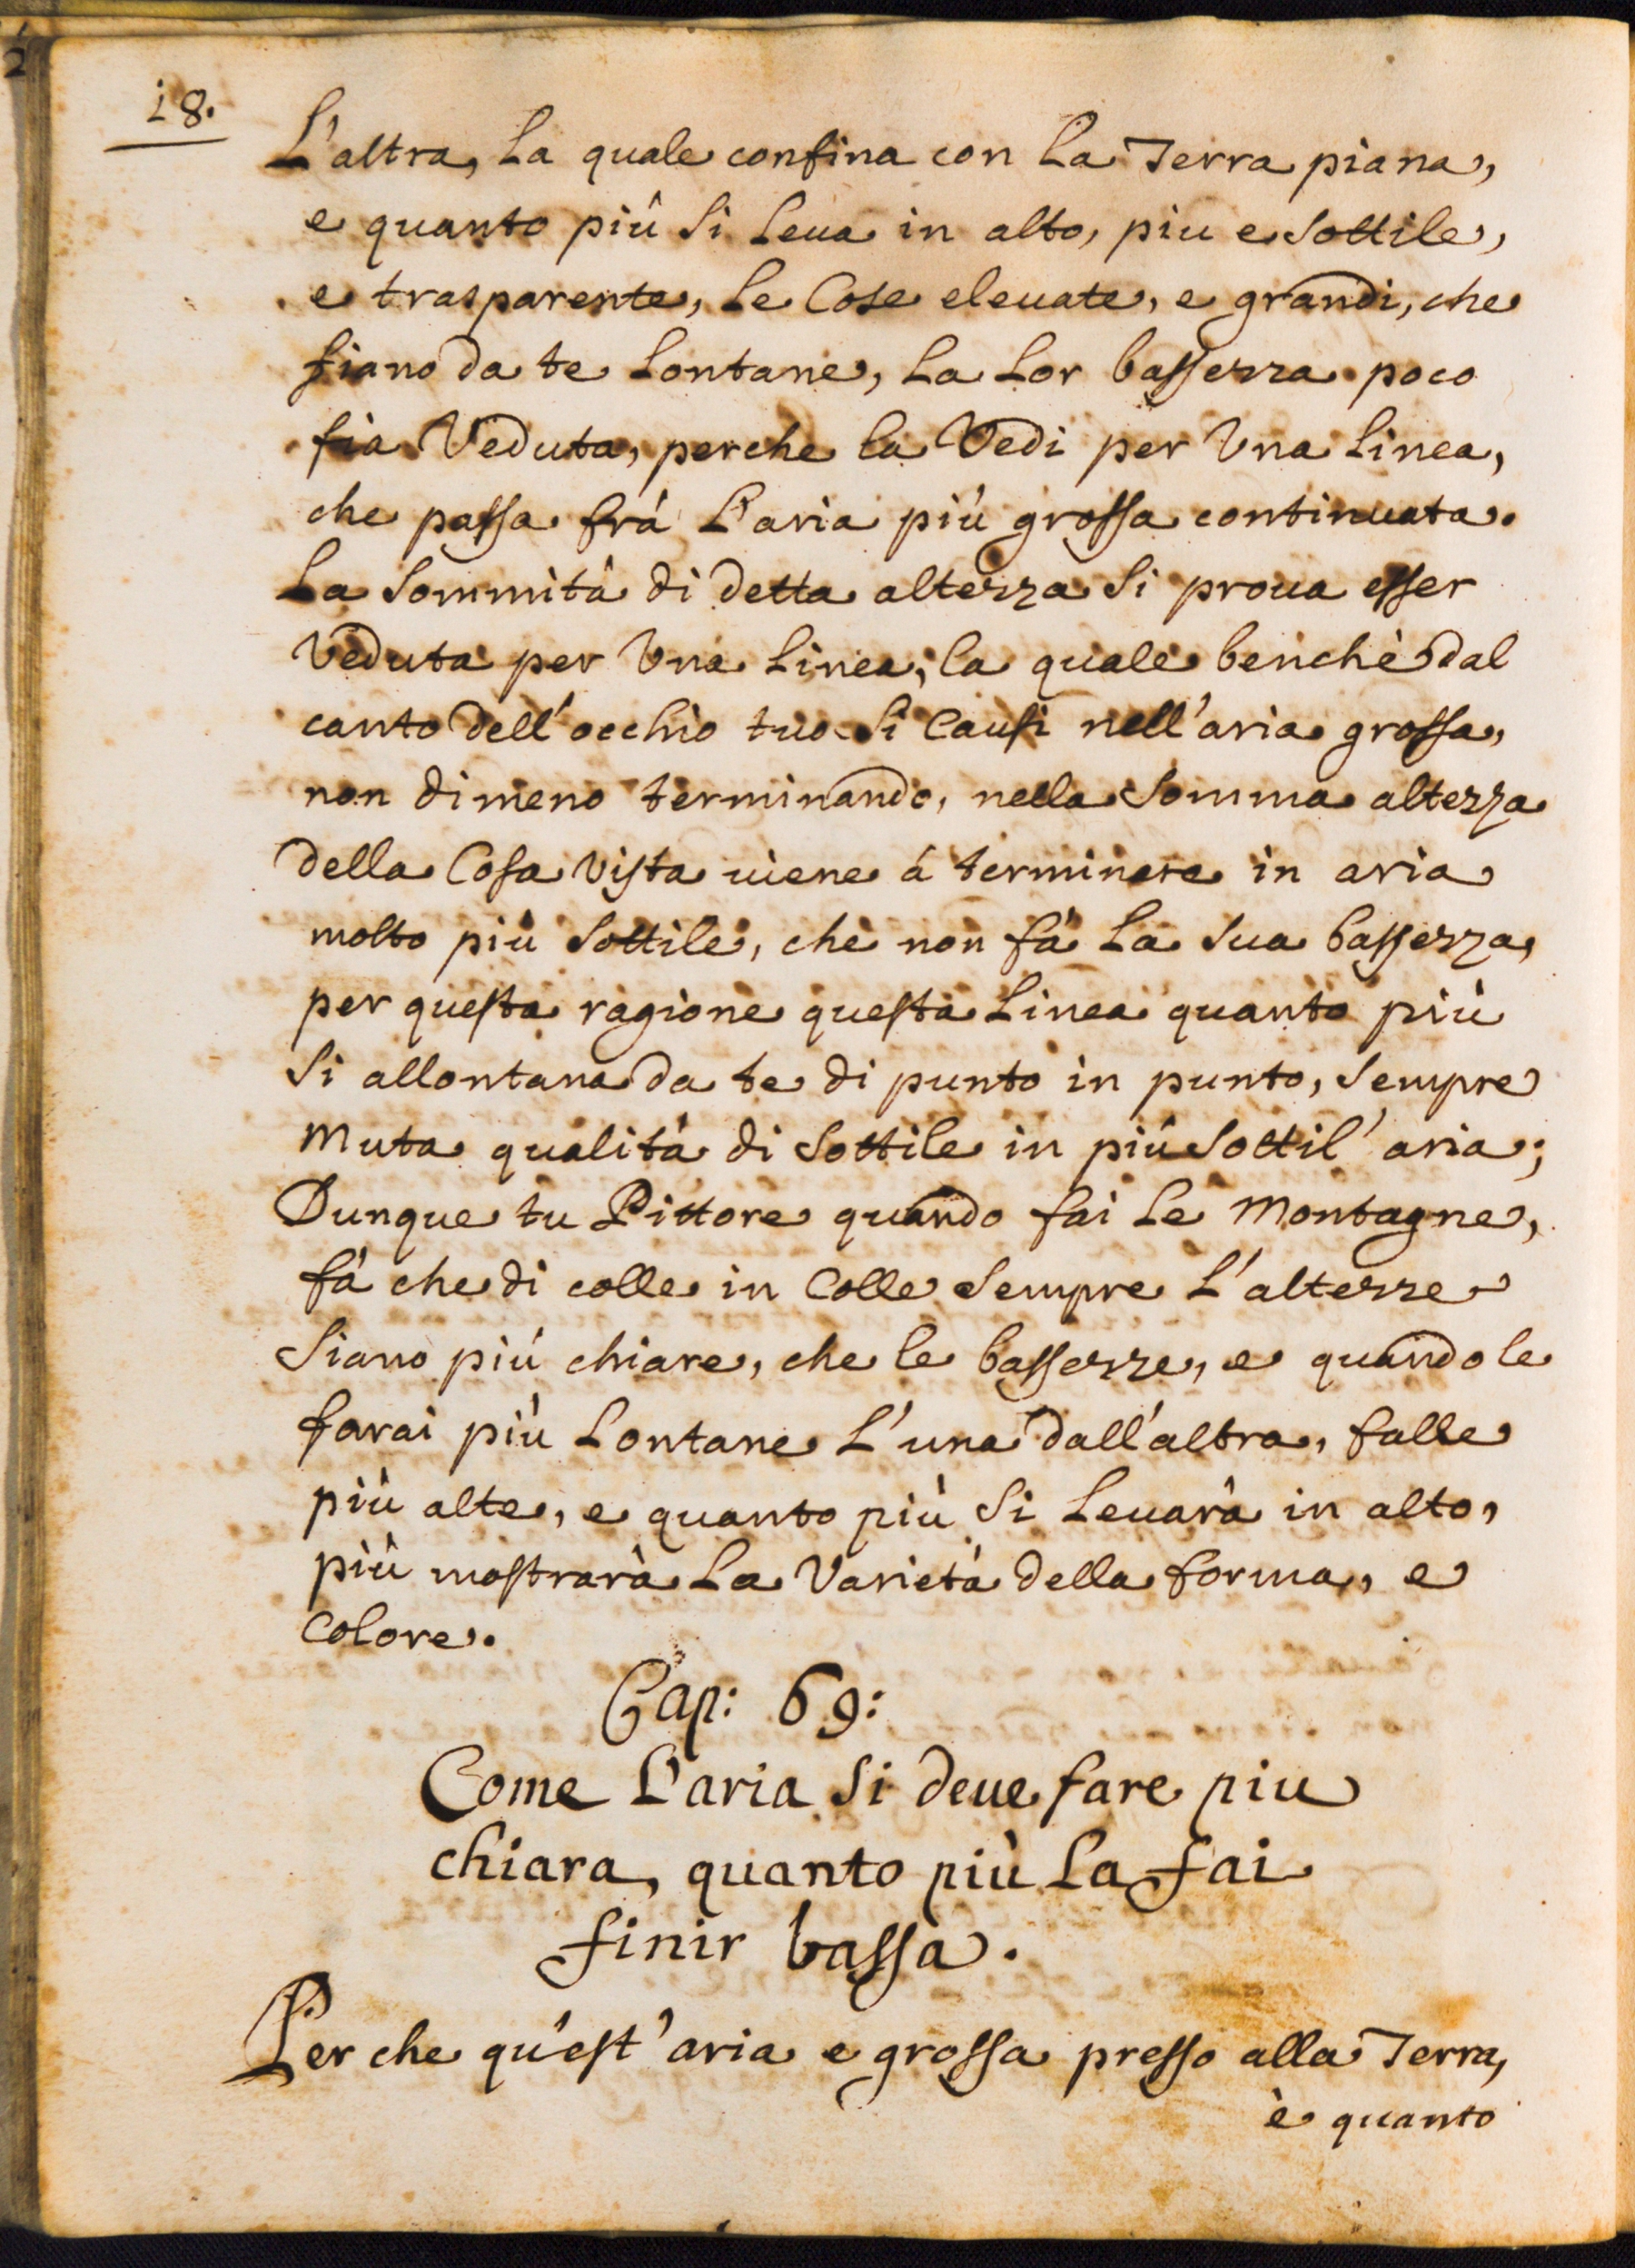 18.
L'altra, La quale confina con la Terra piana,
e quanto più si leua in alto, piu e sottile,
e trasparente, le Cose eleuate, e grandi, che
fiano da te lontane, la lor bassezza poco
fia Veduta, perche la Vedi per Vna linea,
che passa frà l'aria più grossa continuata.
La sommità di detta altezza si proua esser
Veduta per Vna linea, la quale benchè dal
canto dell'occhio tuo si Causi nell'aria grossa,
non dimeno terminando, nella somma altezza
della Cosa Vista uiene à terminare in aria
molto più sottile, che non fà la sua bassezza,
per questa ragione questa linea quanto più
si allontana da te di punto in punto, sempre
muta qualità di sottile in più sottil' aria;
Dunque tu Pittore quando fai le Montagne,
fà che di colle in Colle sempre l'altezze
siano più chiare, che le bassezze, e quando le
farai più lontane l'una dall'altra, falle
più alte, e quanto più si leuarà in alto,
più mostrarà la Varietà della forma, e
Colore.
Cap: 69:
Come l'aria si deue fare piu
chiara, quanto più la fai
finir bassa.
Per che quest'aria e grossa presso alla Terra,
è quanto